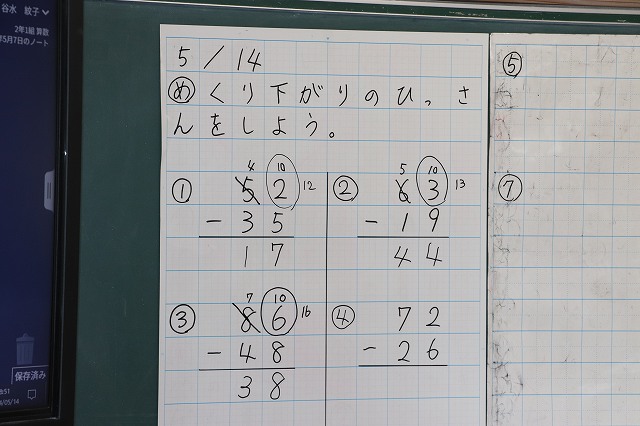 谷水 紋子
2年1組 算数
年5月7日のノート
5/14
め くり下がりのひっさ
んをしよう。
① 4 10
52 12
-35
17
② 5 10
63 13
-19
44
③ 7 10
86 16
-48
38
④ 72
-26
⑤
⑦
保存済み